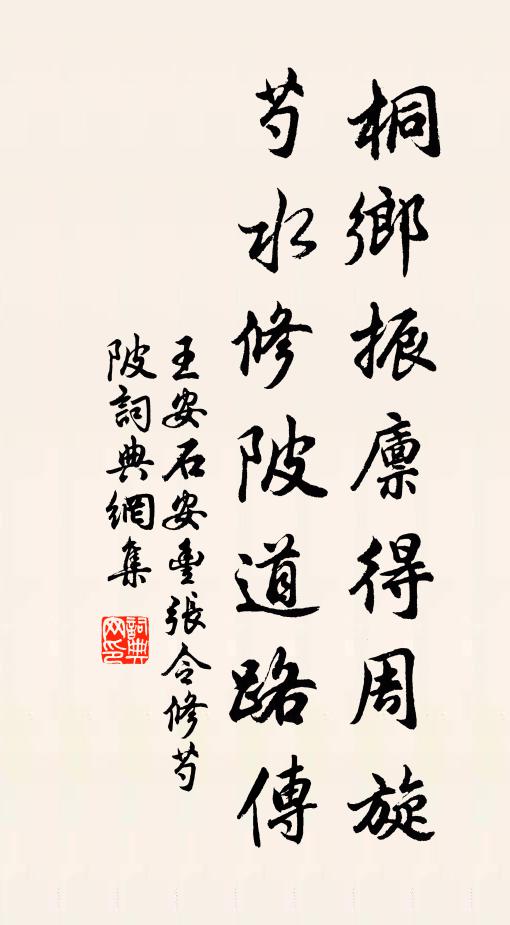 桐鄉振廪得周旋
芍水修陂道路傳
王安石安豐張令修芍
陂詞典網集
詞典網印